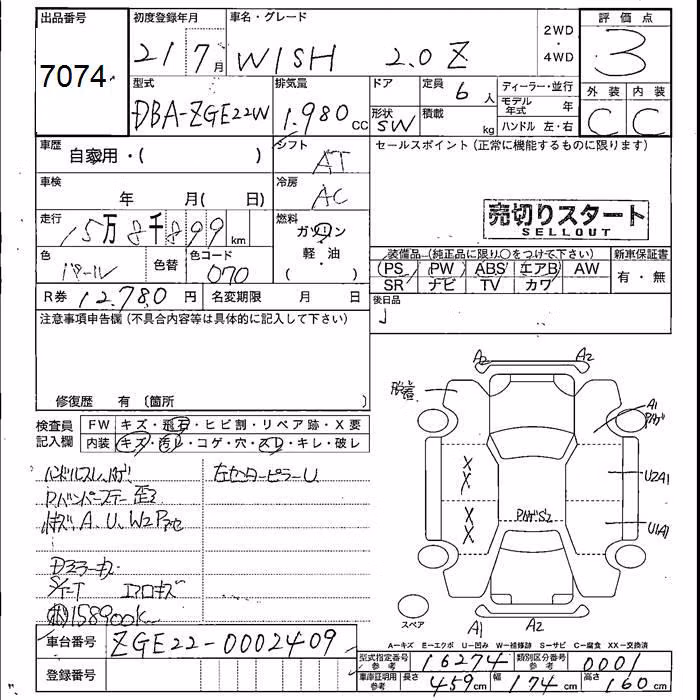 出品番号
7074
初度登録年月
21 7月
車名・グレード
WISH 2.0 Z
2WD
・
4WD
評価点
3
外装 内装
C C
型式
DBA-ZGE22W
排気量
1.980 cc
ドア
形状
SW
定員
6人
積載
kg
ディーラー・並行
モデル年式 年
ハンドル 左・右
車歴
自家用・( )
シフト
AT
車検
年 月( 日)
冷房
AC
走行
15万8千899km
燃料
ガソリン
軽・油
( )
色
パール
色替
色コード
070
R券 12,780円
名変期限 月 日
セールスポイント(正常に機能するものに限ります)
売切りスタート
SELLOUT
装備品(純正品に限り○をつけて下さい)
PS PW ABS エアB AW
SR ナビ TV カワ
新車保証書
有・無
後日品
注意事項申告欄(不具合内容等は具体的に記入して下さい)
修復歴 有〔箇所 〕
検査員
記入欄
FW キズ・飛石・ヒビ割・リペア跡・X要
内装 キズ・汚レ・コゲ・穴・スレ・キレ・破レ
ハンドルスレ、ハゲ
左センターピラーU
A、U、W2
Dミラーキズ
S/T-T エアロキズ
158900k
車台番号 ZGE22-0002409
登録番号
A2 A2
A1
U2A1
U1A1
XX
XX
スペア
A1 A2
A-キズ E-エクボ U-凹み W-補修跡 S-サビ C-腐食 XX-交換済
型式指定番号 参考 16274 類別区分番号 参考 0001
車庫証明用 参考 長さ 459cm 幅 174cm 高さ 160cm